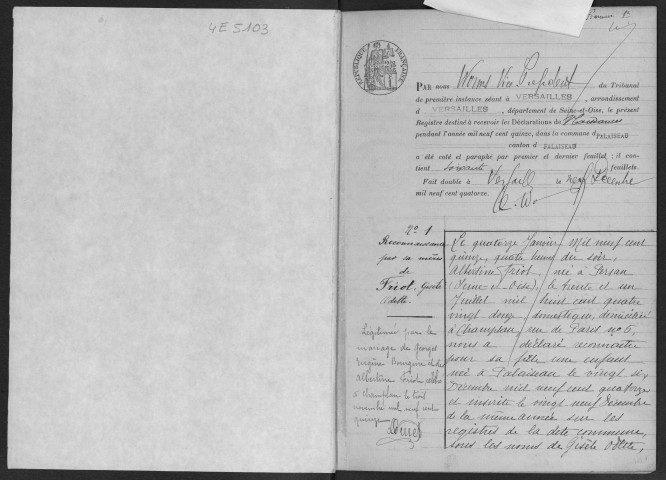 4E 5103
RÉPUBLIQUE FRANÇAISE
PAR NOUS Worms Vice Président du Tribunal
de première instance séant à VERSAILLES, arrondissement
d VERSAILLES, département de Seine-et-Oise, le présent
Registre destiné à recevoir les Déclarations de Naissances
pendant l'année mil neuf cent quinze, dans la commune d PALAISEAU
canton d PALAISEAU
a été coté et paraphé par premier et dernier feuillet; il con-
tient soixante feuillets.
Fait double à Versailles le neuf Décembre
mil neuf cent quatorze.
No 1
Reconnaissance
par sa mère
de
Friot, Gisèle
Odette.
Légitimée par le
mariage de Georges
Eugène Bourgeois et de
Albertine Friot célébré
à Champlan le trois
novembre mil neuf cent
quinze
Le quatorze Janvier mil neuf cent
quinze, quatre heures du soir,
Albertine Friot, née à Persan
(Seine-et-Oise), le trente et un
Juillet mil huit cent quatre
vingt douze domestique, domiciliée
à Champlan, rue de Paris no 6,
nous a déclaré reconnaître
pour sa fille une enfant
née à Palaiseau le vingt six
Décembre mil neuf cent quatorze
et inscrite le vingt neuf Décembre
de la même année sur les
registres de la dite commune,
sous les noms de Gisèle Odette,